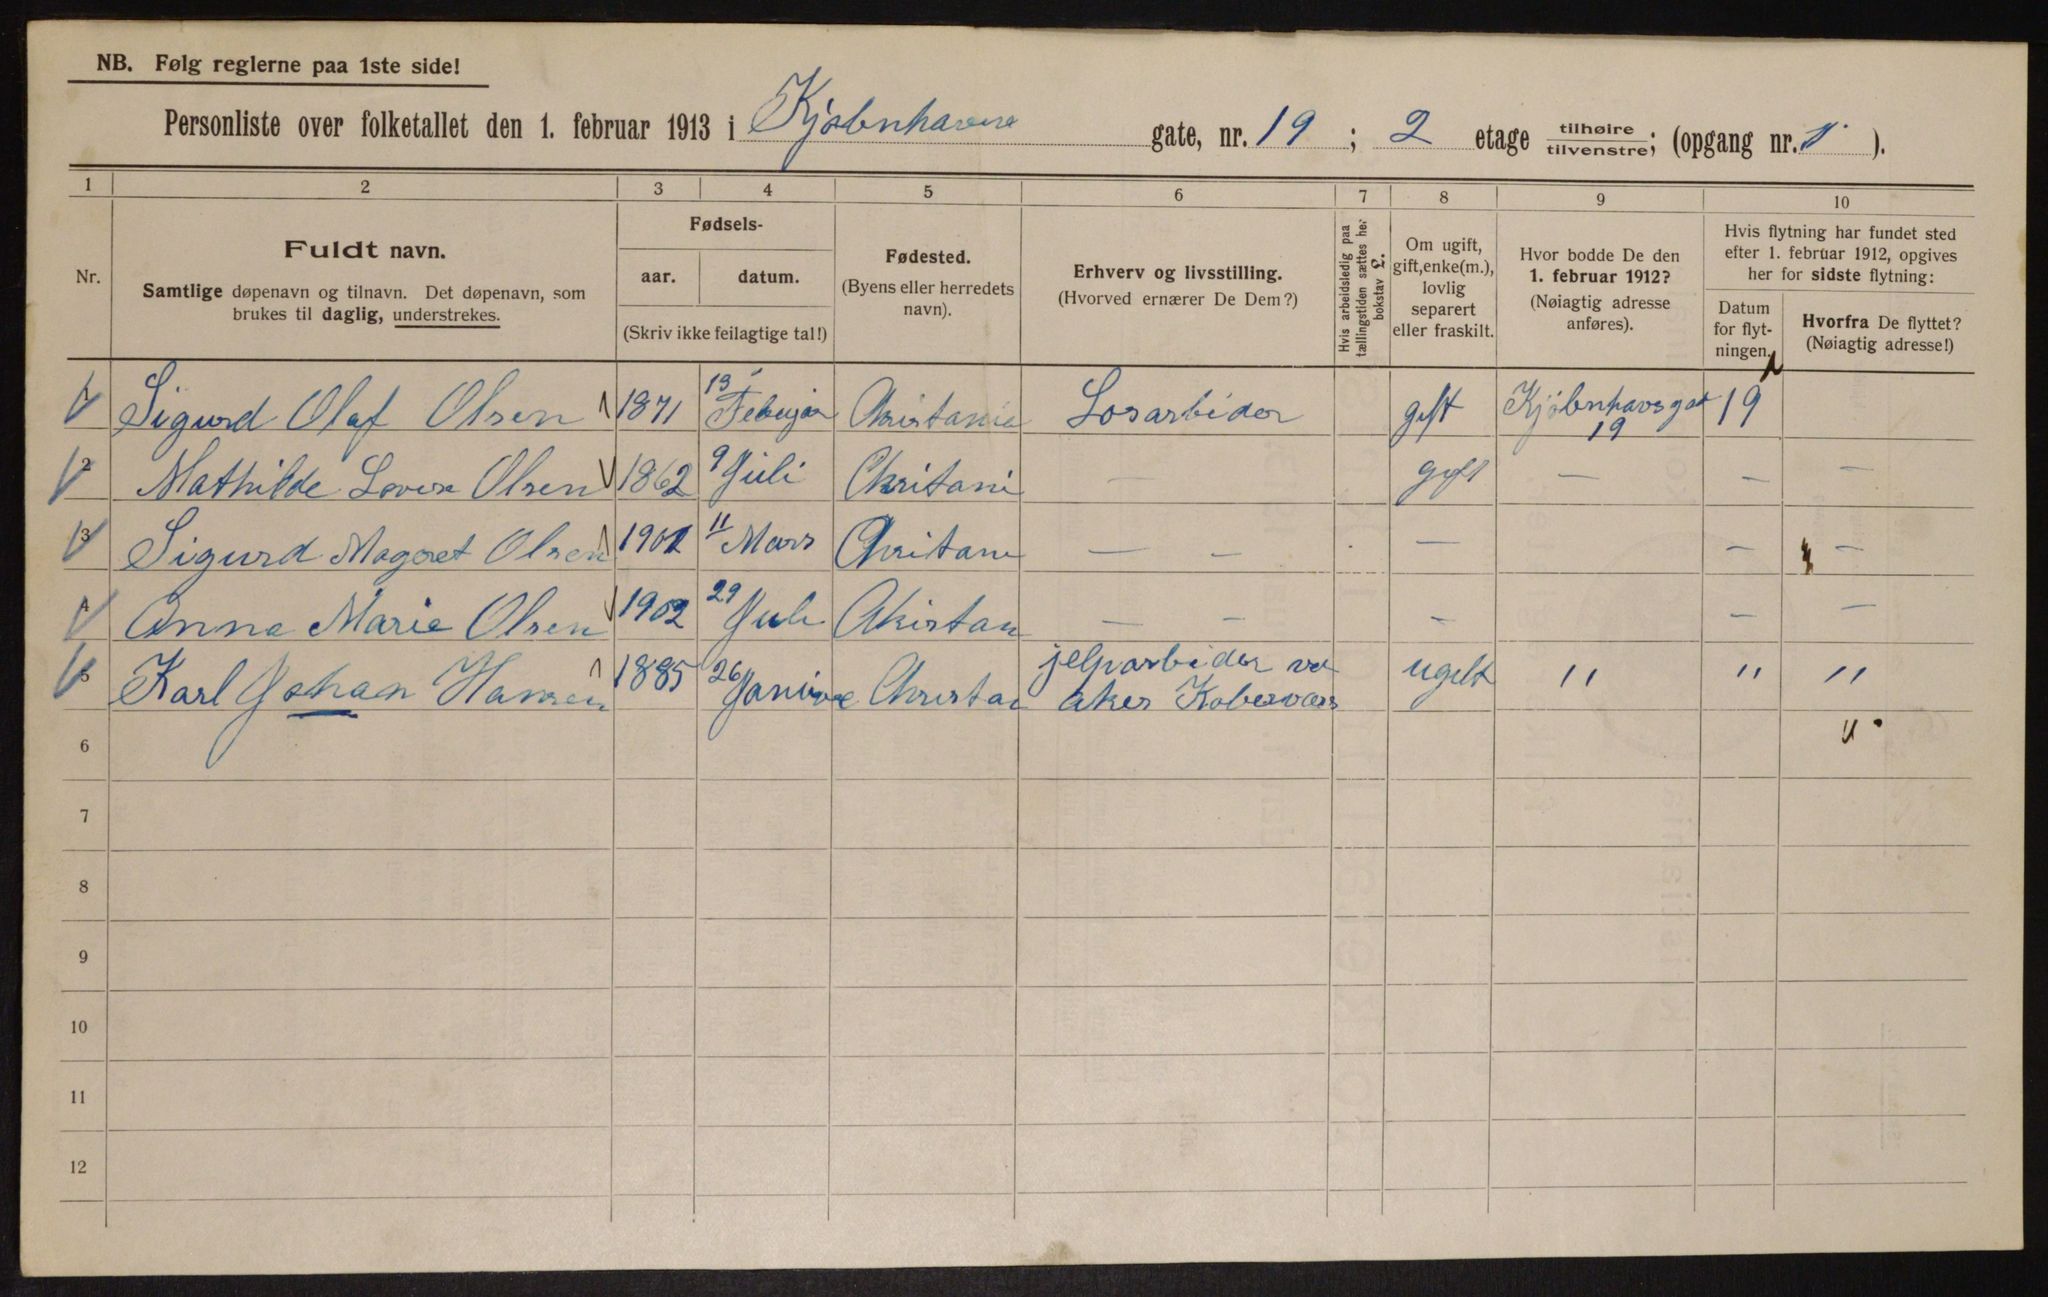 NB. Følg reglerne paa 1ste side!
Personliste over folketallet den 1. februar 1913 i Kjøbenhavns gate, nr. 19 ; 2 etage tilhøire / tilvenstre ; (opgang nr. ).
1 2 3 4 5 6 7 8 9 10
Nr.
Fuldt navn.
Samtlige døpenavn og tilnavn. Det døpenavn, som
brukes til daglig, understrekes.
Fødsels-
aar. datum.
(Skriv ikke feilagtige tal!)
Fødested.
(Byens eller herredets
navn).
Erhverv og livsstilling.
(Hvorved ernærer De Dem?)
Hvis arbeidsledig paa
tællingstiden sættes her
bokstav L.
Om ugift,
gift, enke(m.),
lovlig
separert
eller fraskilt.
Hvor bodde De den
1. februar 1912?
(Nøiagtig adresse
anføres).
Hvis flytning har fundet sted
efter 1. februar 1912, opgives
her for sidste flytning:
Datum
for flyt-
ningen.
Hvorfra De flyttet?
(Nøiagtig adresse!)
1 Sigurd Olaf Olsen 1871 13 Februar Christania Losarbider gift Kjøbenhavsgat 19 19
2 Mathilde Lovise Olsen 1862 9 Juli Chritani — gift — — —
3 Sigurd Magoret Olsen 1901 11 Mars Chritani — — — — —
4 Anna Marie Olsen 1902 29 Juli Christan — — — — —
5 Karl Johan Hansen 1885 26 Christan jelparbider ve ugift " " "
aker
6
7
8
9
10
11
12